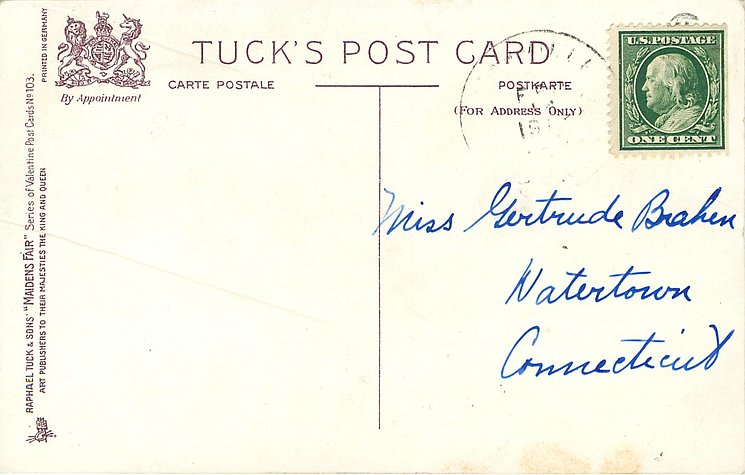 PRINTED IN GERMANY
By Appointment
TUCK'S POST CARD
CARTE POSTALE
POSTKARTE
(FOR ADDRESS ONLY)
U.S. POSTAGE
ONE CENT
Miss Gertrude Brahen
Watertown
Connecticut
RAPHAEL TUCK & SONS' "MAIDENS FAIR" Series of Valentine Post Cards No 103.
ART PUBLISHERS TO THEIR MAJESTIES THE KING AND QUEEN